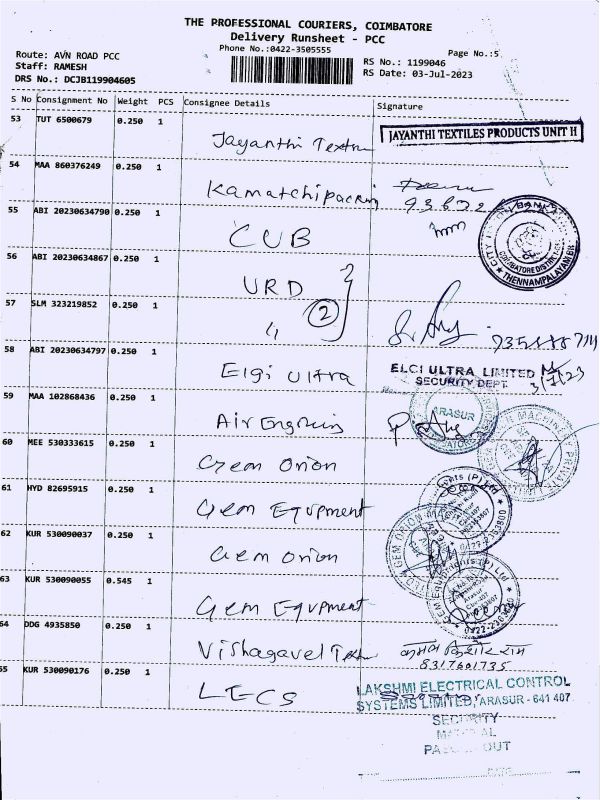 THE PROFESSIONAL COURIERS, COIMBATORE
Delivery Runsheet - PCC
Phone No.:0422-3505555
Page No.:5
Route: AVN ROAD PCC
Staff: RAMESH
DRS No.: DCJB119904605
RS No.: 1199046
RS Date: 03-Jul-2023
S No Consignment No Weight PCS Consignee Details Signature
53 TUT 6500679 0.250 1 Jayanthi JAYANTHI TEXTILES PRODUCTS UNIT II
54 MAA 860376249 0.250 1 Kamatchipacking
55 ABI 20230634790 0.250 1 CUB
CITY BANK
COIMBATORE DISTRICT
THENNAMPALAYAM BR
56 ABI 20230634867 0.250 1 URD
2
57 SLM 323219852 0.250 1 "
58 ABI 20230634797 0.250 1 Elgi Ultra ELGI ULTRA LIMITED
SECURITY DEPT.
3/7/23
59 MAA 102868436 0.250 1 Air
ARASUR
60 MEE 530333615 0.250 1 Gem Orion
61 HYD 82695915 0.250 1 Gem Equpment
62 KUR 530090037 0.250 1 Gem Orion
GEM ORION MACHINERY
63 KUR 530090055 0.545 1 Gem Equpment
GEM Equipments (P) Ltd
64 DDG 4935850 0.250 1 Vishagavel
8317601735
65 KUR 530090176 0.250 1 LECS
LAKSHMI ELECTRICAL CONTROL
SYSTEMS LIMITED, ARASUR - 641 407
SECURITY
MATERIAL
OUT
DATE